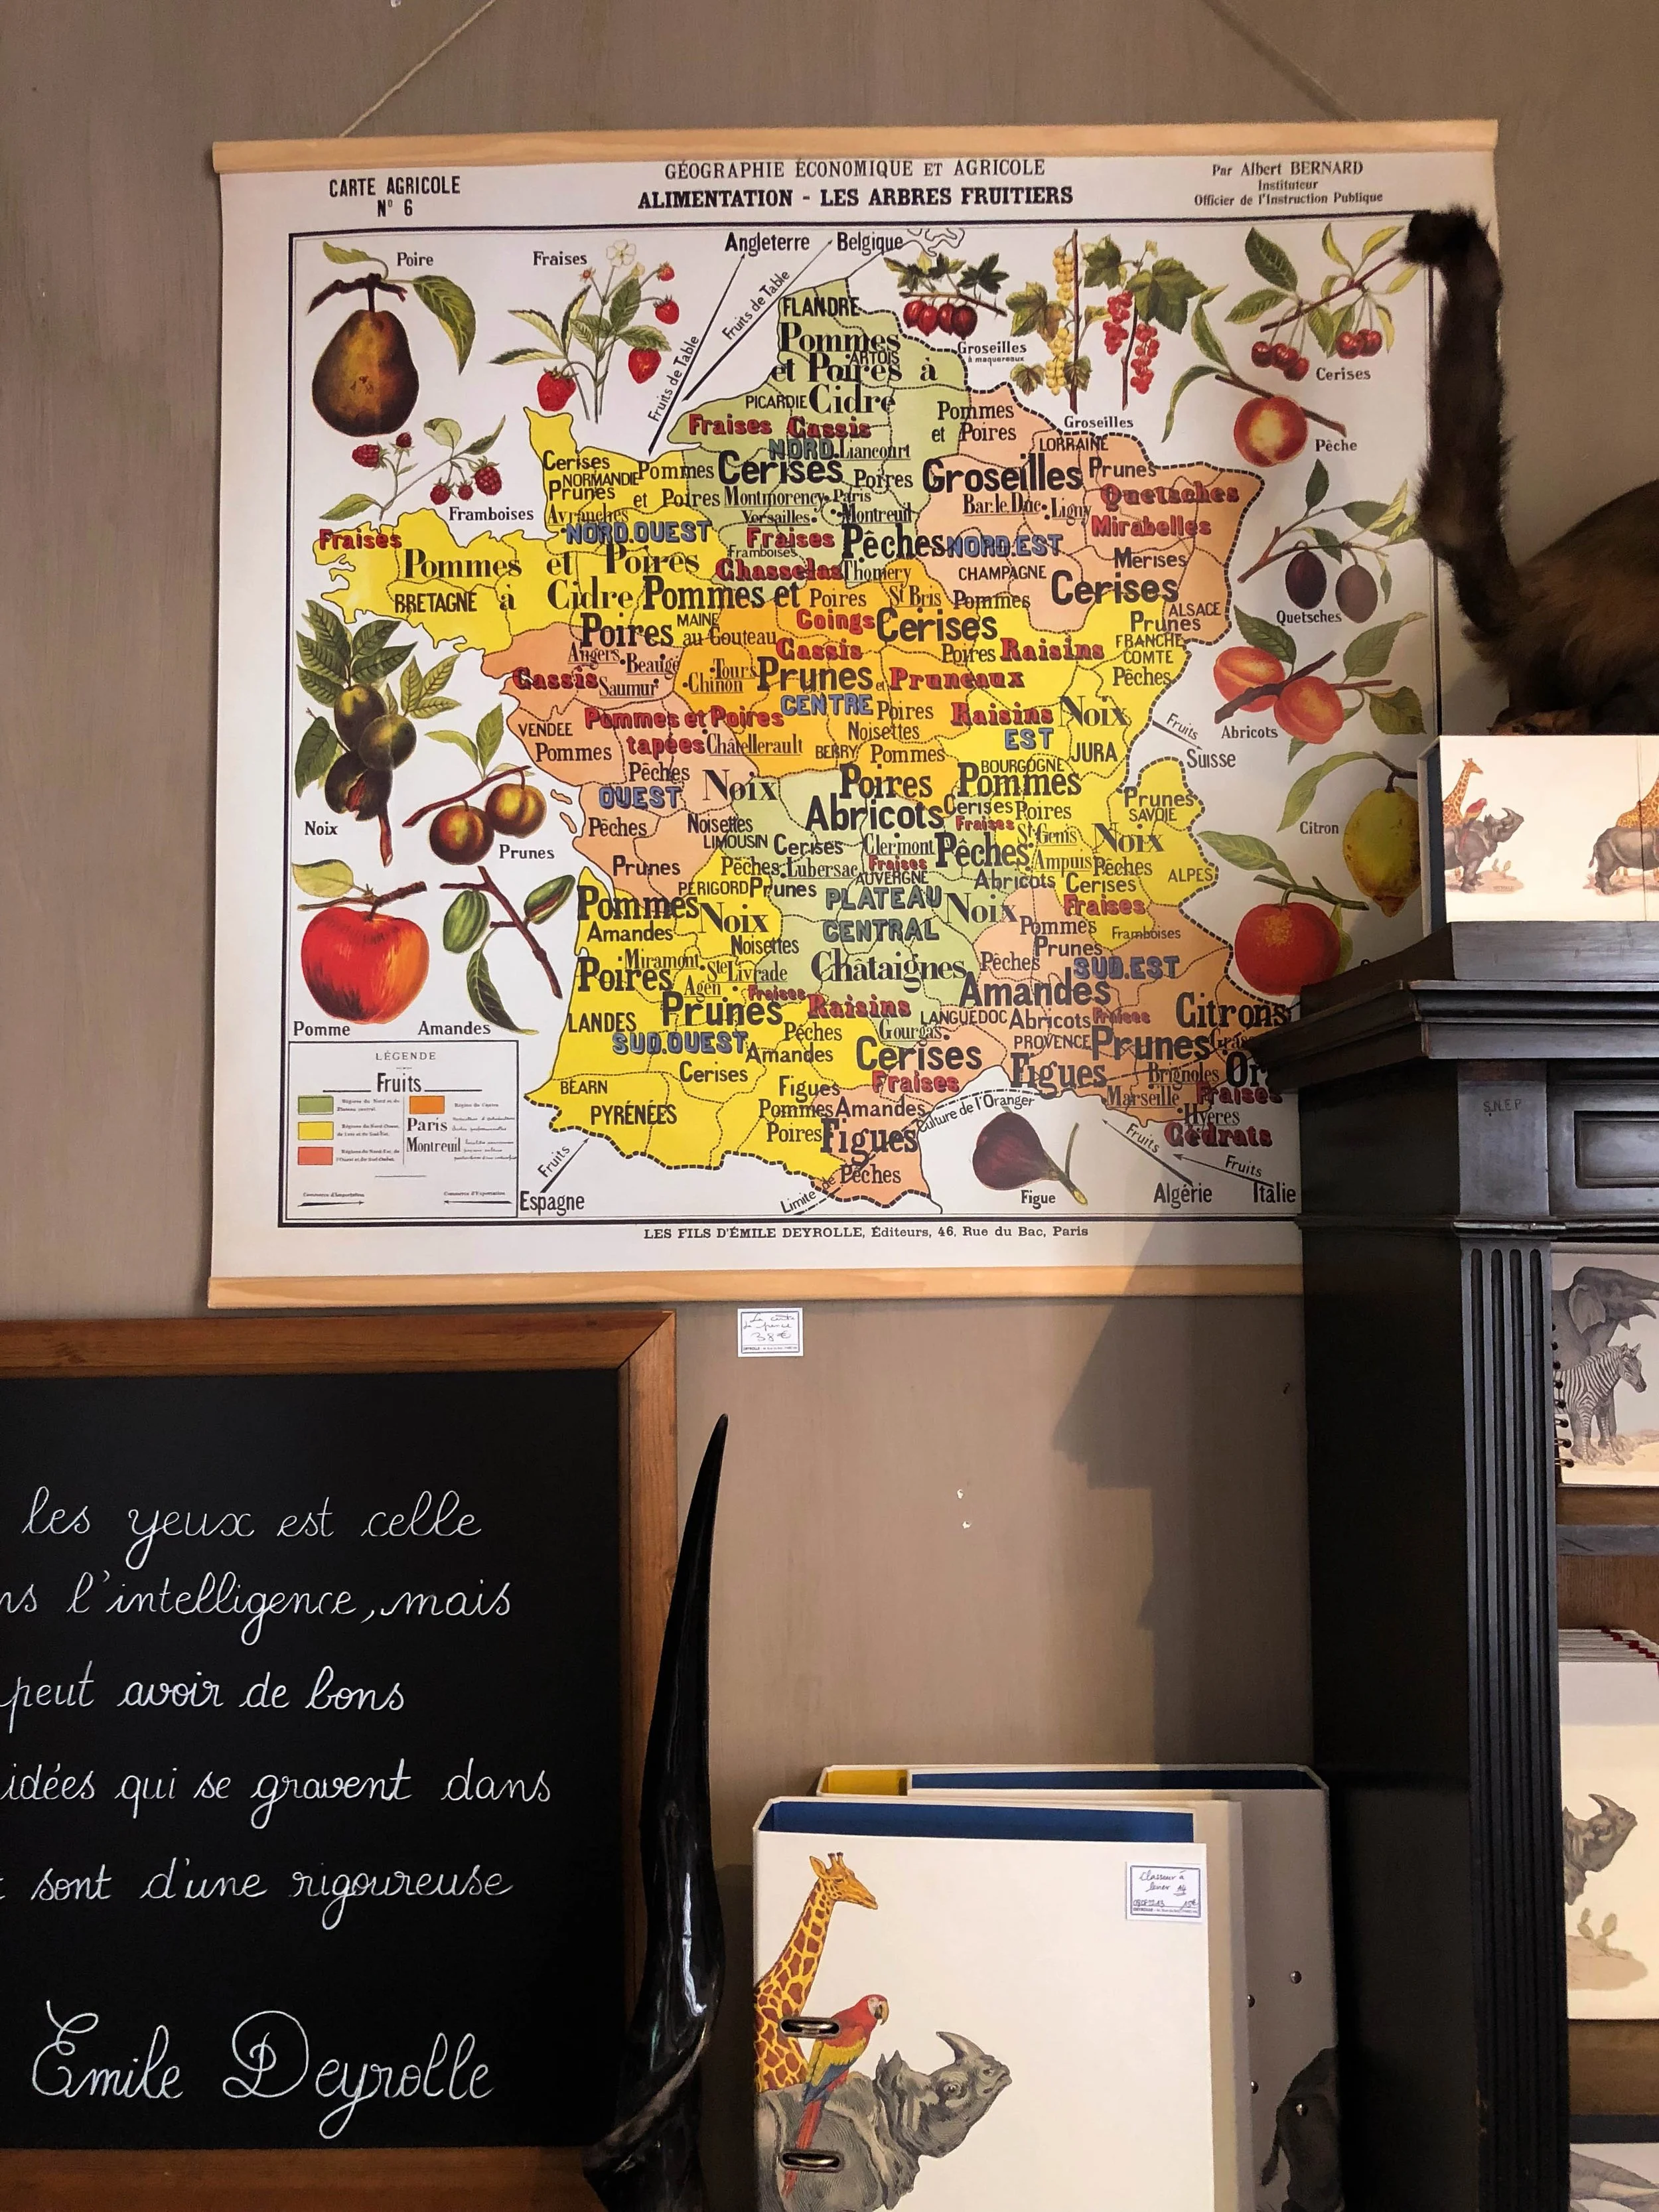 CARTE AGRICOLE
N° 6
GÉOGRAPHIE ÉCONOMIQUE ET AGRICOLE
ALIMENTATION - LES ARBRES FRUITIERS
Par Albert BERNARD
Instituteur
Officier de l'Instruction Publique
Poire
Fraises
Angleterre
Belgique
Fruits de Table
Fruits de Table
Groseilles
à maquereaux
Groseilles
Cerises
Pêche
Framboises
Quetsches
Abricots
Noix
Prunes
Citron
Pomme
Amandes
Figue
FLANDRE
Pommes
ARTOIS
et Poires à
PICARDIE Cidre
Pommes
et Poires
Fraises Cassis
NORD Liancourt
LORRAINE
Cerises
NORMANDIE Pommes Cerises Poires Groseilles Prunes
Prunes et Poires Montmorency Paris Bar.le.Duc Ligny Quetsches
Avranches Versailles Montreuil Mirabelles
Fraises NORD.OUEST Fraises Pêches NORD.EST
Framboises Merises
Pommes et Poires Chasselas Thomery CHAMPAGNE Cerises
BRETAGNE à Cidre Pommes et Poires St Bris Pommes ALSACE
Poires MAINE au Couteau Coings Cerises Prunes
FRANCHE
COMTE
Angers Beaugé Cassis Poires Raisins
Cassis Saumur Tours Chinon Prunes et Pruneaux Pêches
CENTRE Poires Raisins Noix
VENDEE Pommes et Poires Noisettes EST
Pommes tapées Châtellerault BERRY Pommes JURA
Fruits
Suisse
Pêches Noix Poires BOURGOGNE
Pommes
OUEST Abricots Cerises Poires Prunes
SAVOIE
Pêches Noisettes Fraises St Genis Noix
LIMOUSIN Cerises Clermont Pêches Ampuis Pêches
Prunes Pêches Lubersac Fraises
AUVERGNE Abricots Cerises ALPES
PÉRIGORD Prunes PLATEAU Fraises
Pommes Noix CENTRAL Noix Pommes Framboises
Amandes Noisettes Prunes
Miramont Ste Livrade Châtaignes Pêches SUD.EST
Poires Agen Fraises Amandes
Prunes Raisins LANGUEDOC Abricots Fraises Citrons
LANDES Pêches Gourgas PROVENCE Prunes
SUD.OUEST Amandes Cerises Figues Brignoles Or
Cerises Fraises Marseille Fraises
BÉARN Figues Hyères
PYRÉNÉES Pommes Amandes Culture de l'Oranger Cédrats
Poires Figues
Pêches
Limite de
Fruits
Espagne
Fruits
Algérie
Fruits
Italie
LÉGENDE
Fruits
Paris
Montreuil
Commerce d'Importation
Commerce d'Exportation
LES FILS D'ÉMILE DEYROLLE, Éditeurs, 46, Rue du Bac, Paris
38€
S.N.E.P
les yeux est celle
ns l'intelligence, mais
peut avoir de bons
idées qui se gravent dans
t sont d'une rigoureuse
Emile Deyrolle
Classeur à
levier A4